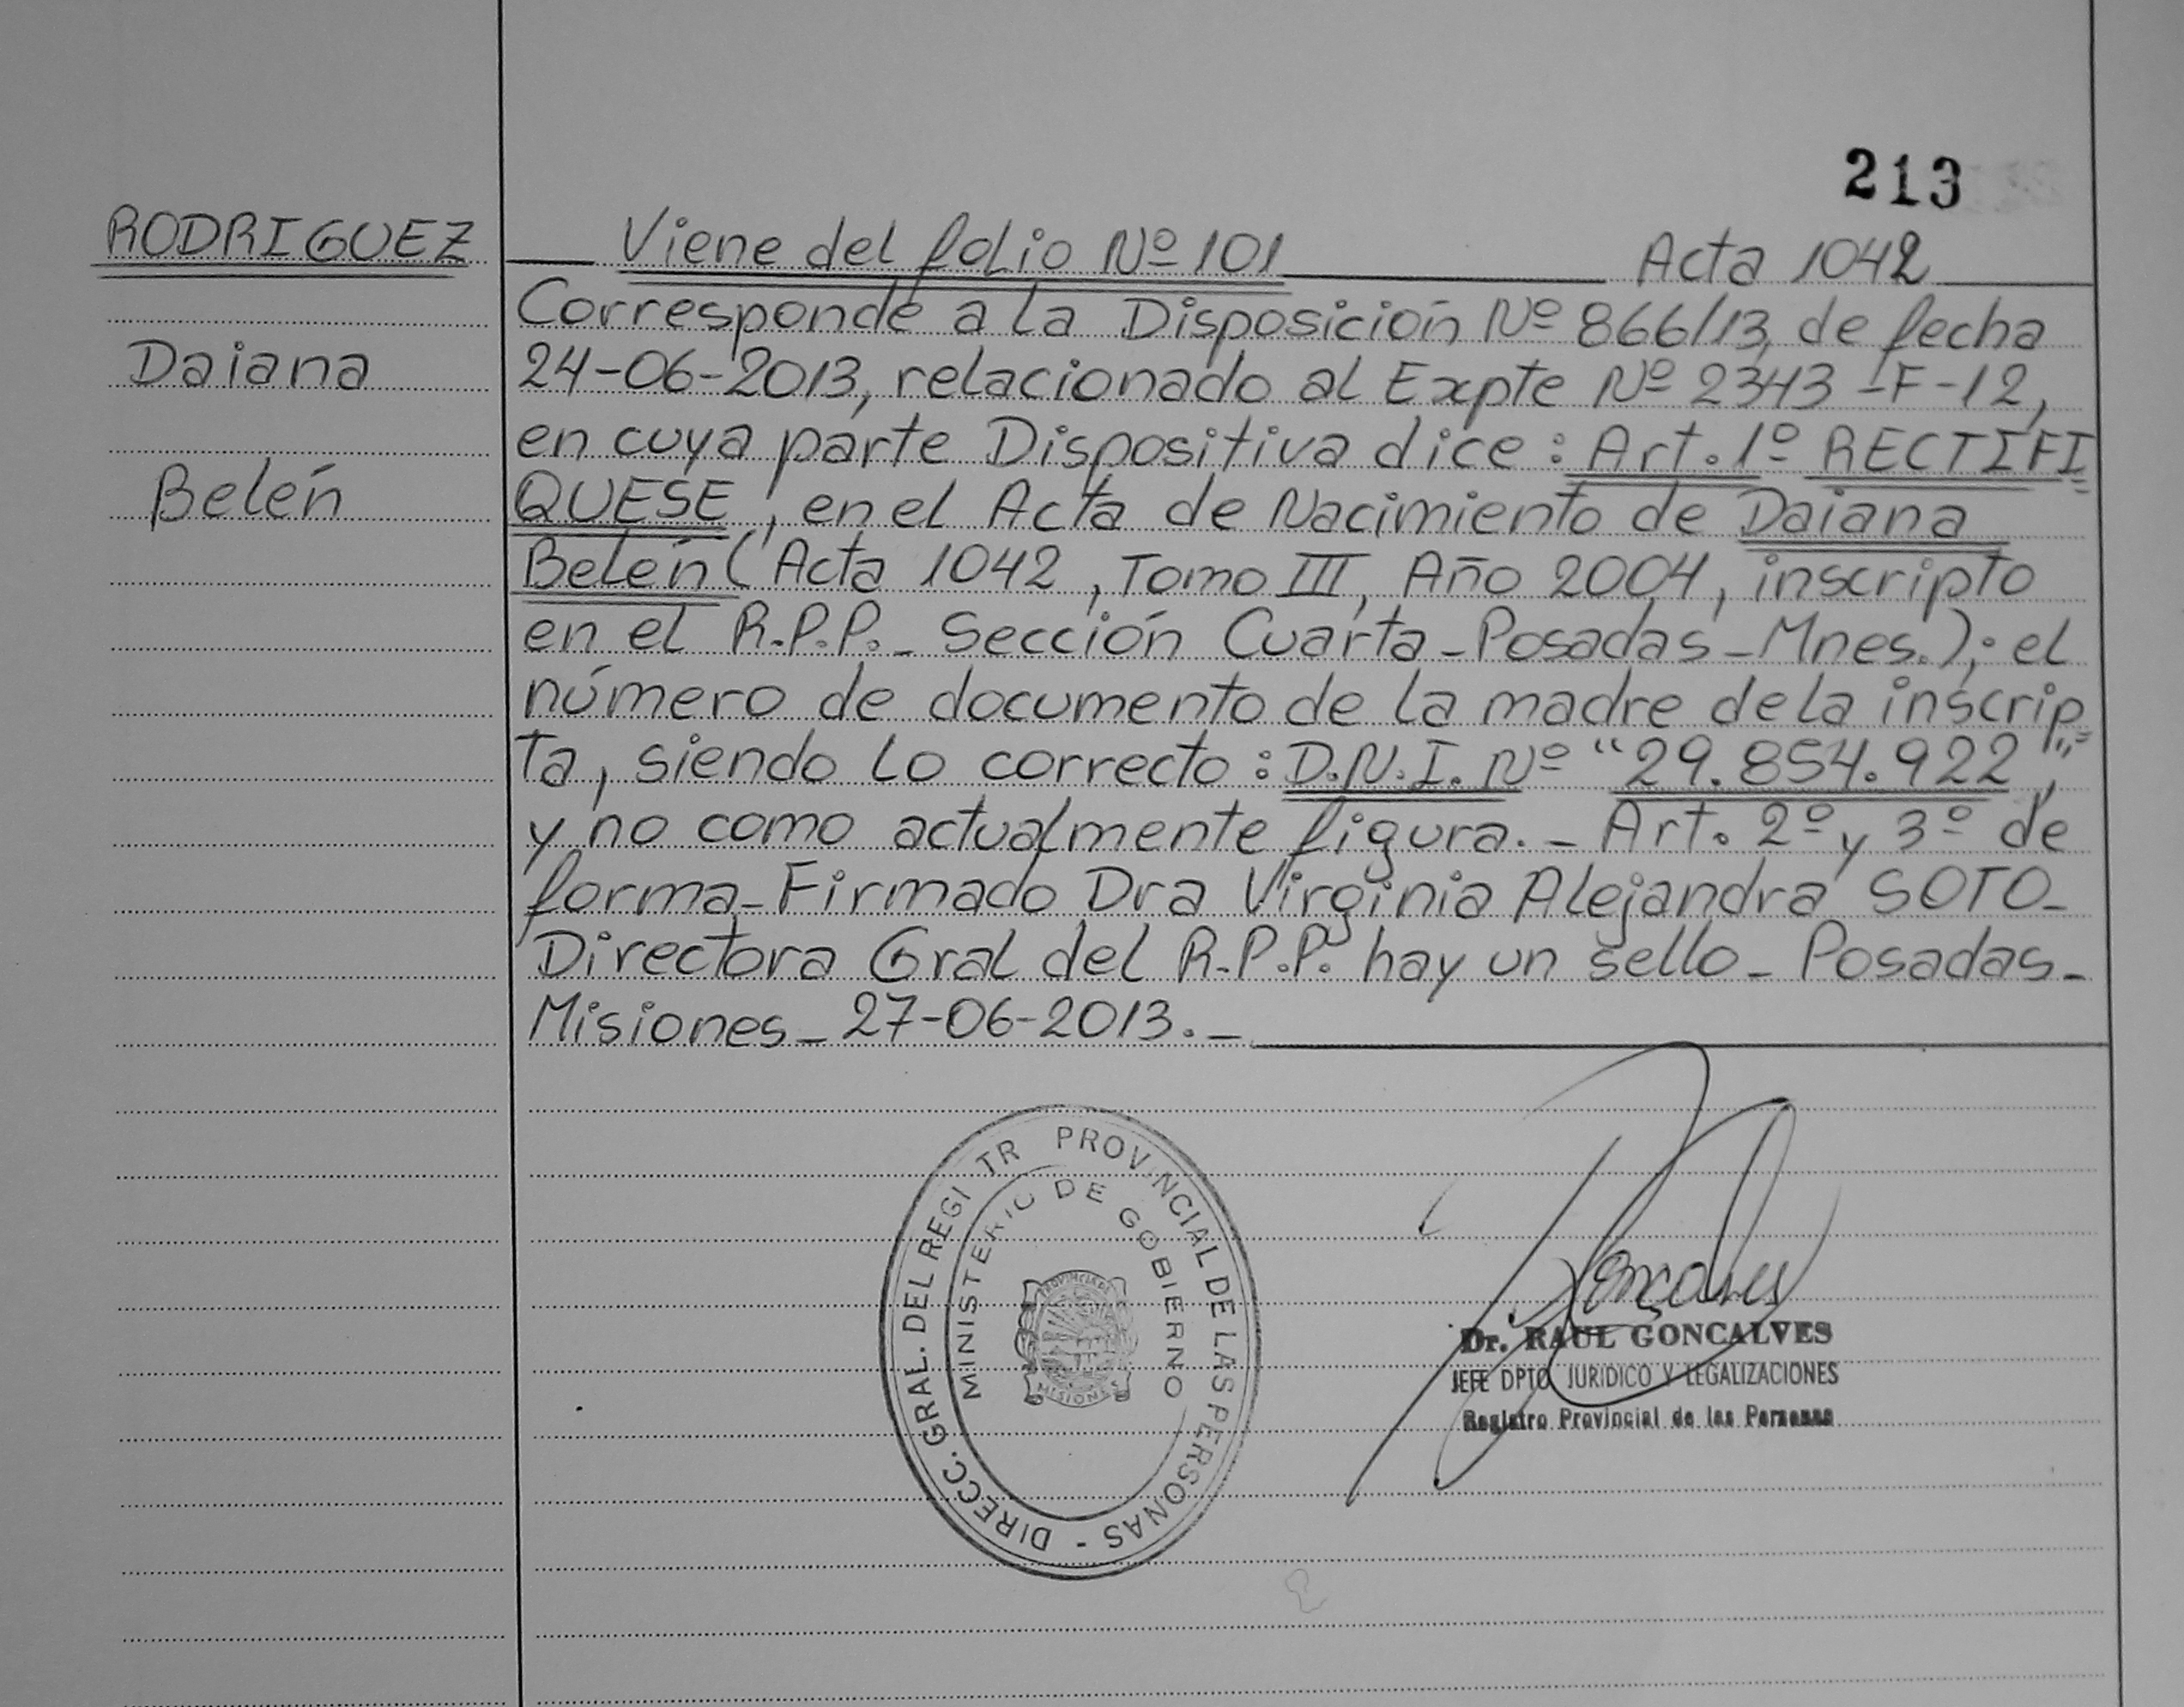 213
RODRIGUEZ
Daiana
Belén
Viene del folio Nº 101 Acta 1042
Corresponde a la Disposición Nº 866/13, de fecha
24-06-2013, relacionado al Expte Nº 2343-F-12,
en cuya parte Dispositiva dice: Art. 1º RECTIFI
QUESE, en el Acta de Nacimiento de Daiana
Belén (Acta 1042, Tomo III, Año 2004, inscripto
en el R.P.P. - Sección Cuarta - Posadas - Mnes.); el
número de documento de la madre de la inscrip=
ta, siendo lo correcto: D.N.I. Nº "29.854.922",
y no como actualmente figura. - Art. 2º y 3º de
forma - Firmado Dra Virginia Alejandra SOTO -
Directora Gral del R.P.P. hay un sello - Posadas -
Misiones - 27-06-2013. -
DIRECC. GRAL. DEL REGI TR PROVINCIAL DE LAS PERSONAS -
MINISTERIO DE GOBIERNO
PROVINCIA DE
MISIONES
Goncalves
Dr. RAUL GONCALVES
JEFE DPTO JURIDICO Y LEGALIZACIONES
Registro Provincial de las Personas